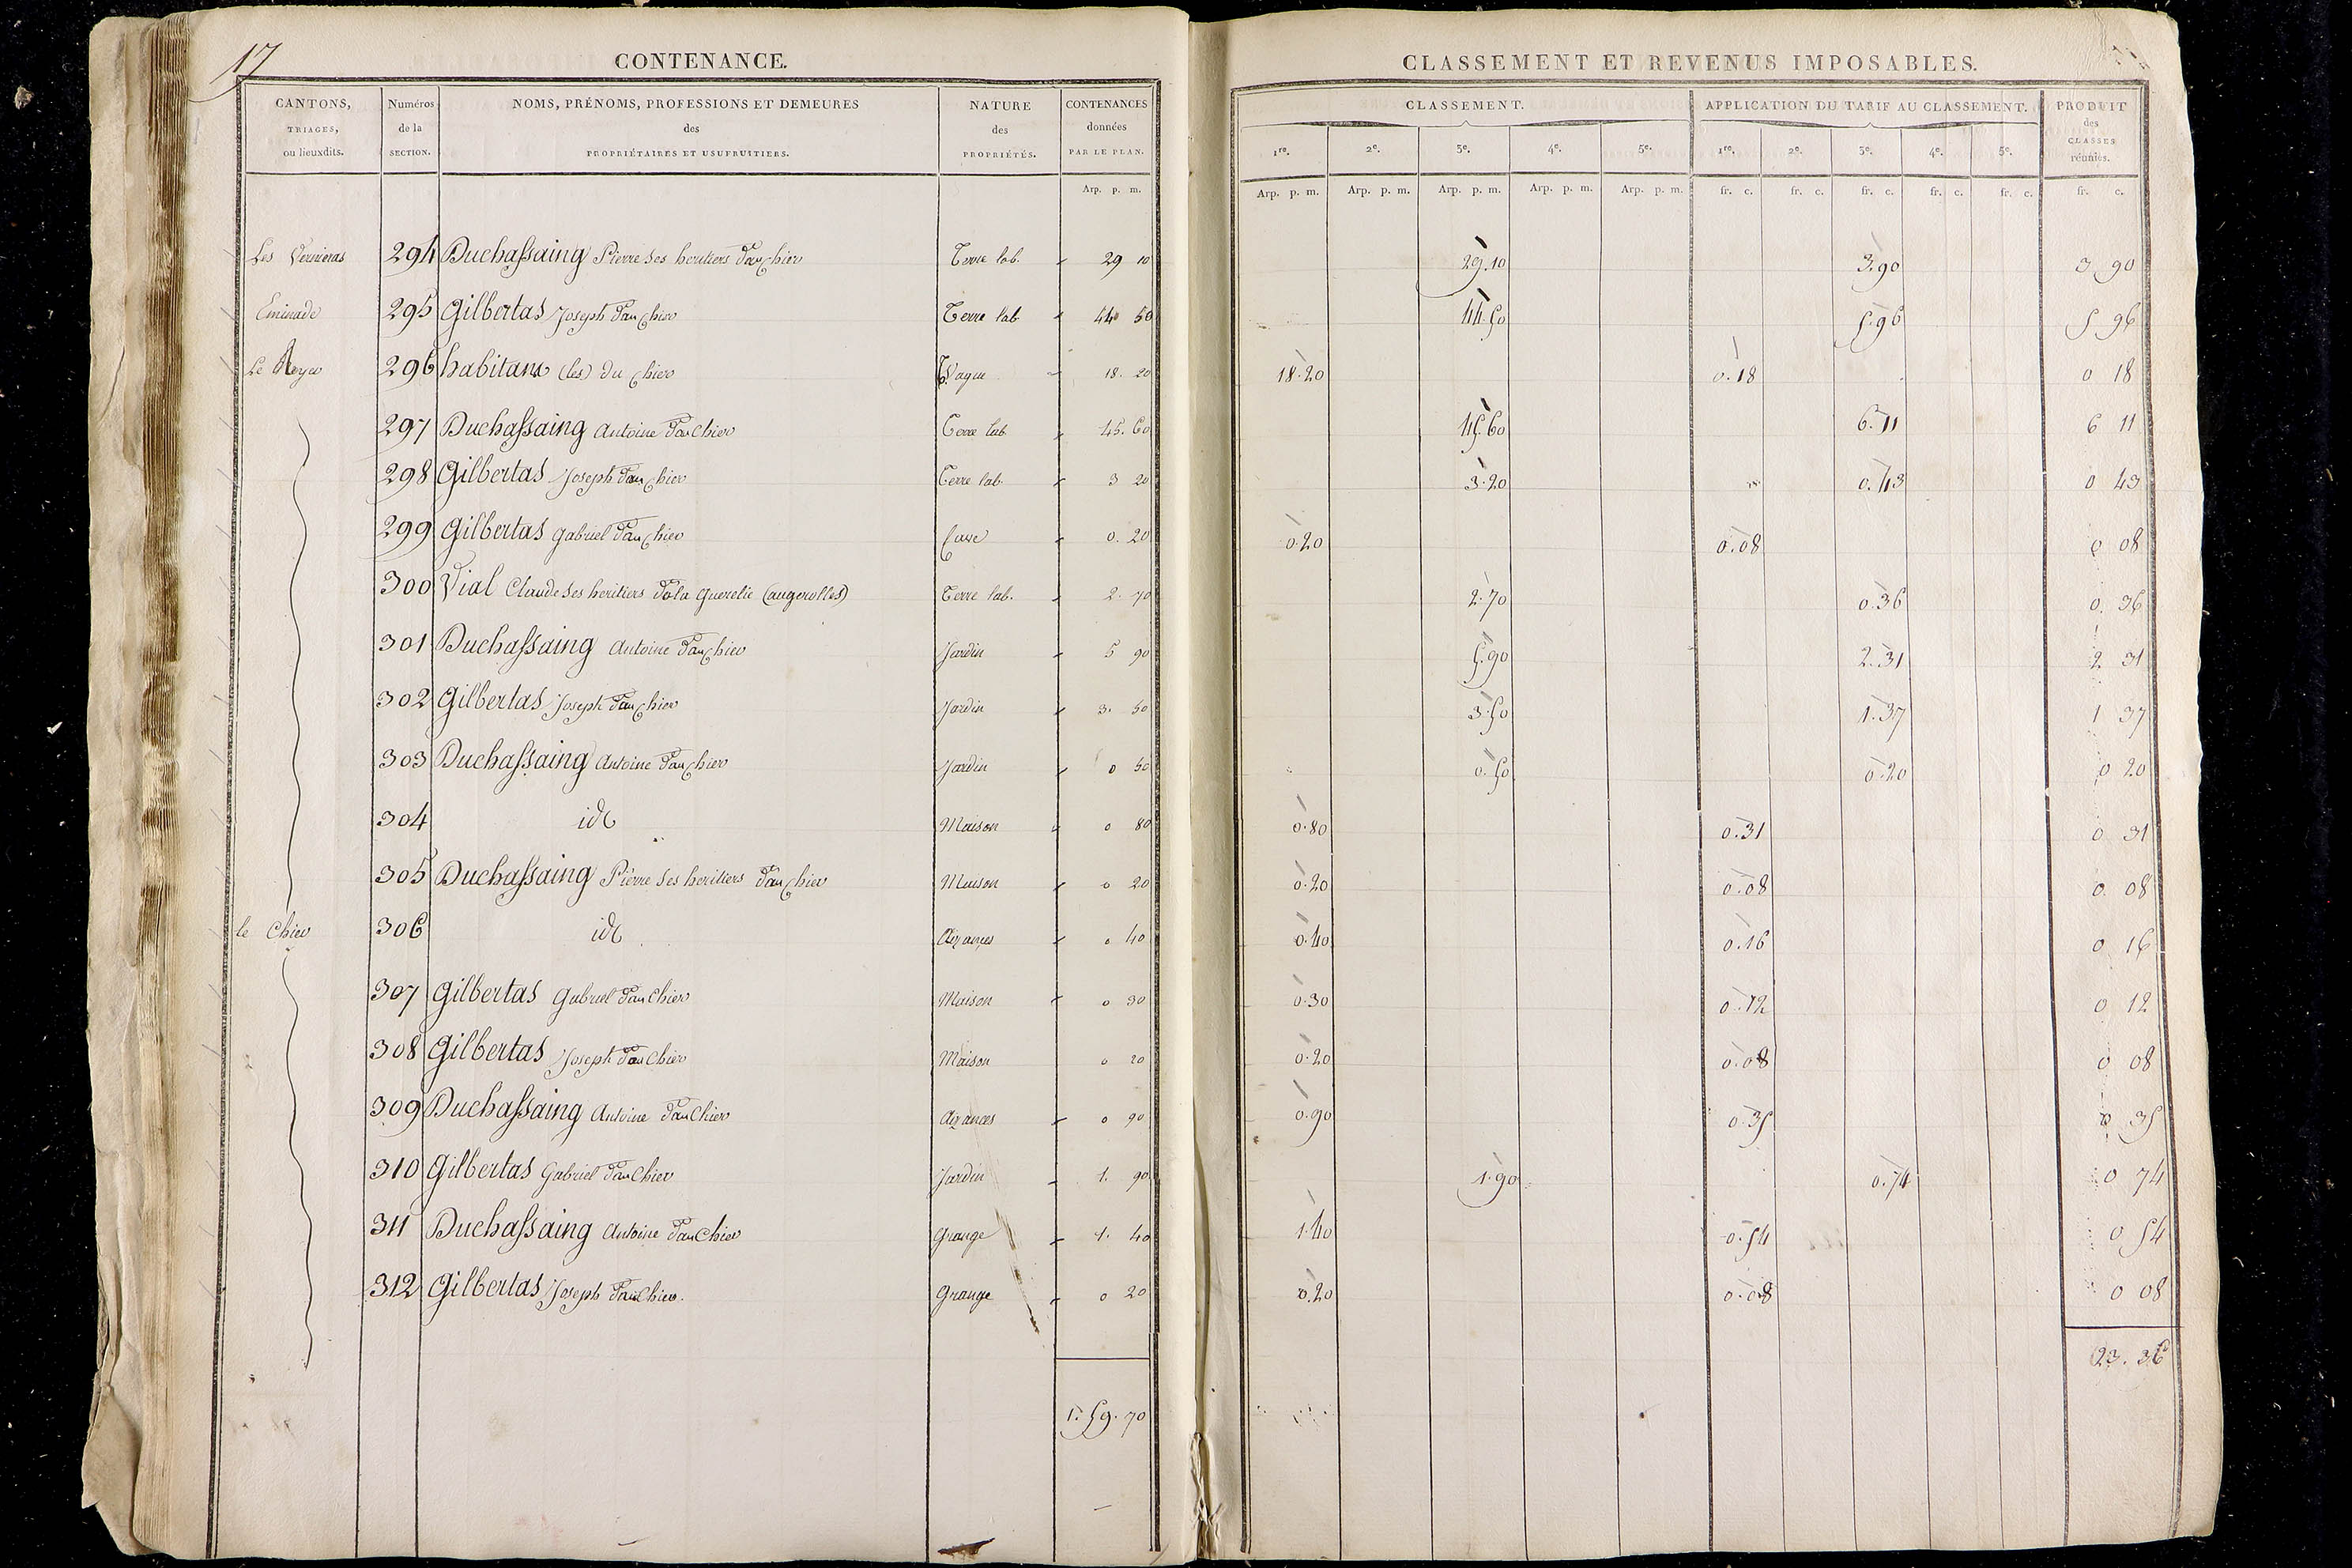 17
CONTENANCE.
CANTONS, TRIAGES, ou lieuxdits.
Numéros de la SECTION.
NOMS, PRÉNOMS, PROFESSIONS ET DEMEURES des PROPRIÉTAIRES ET USUFRUITIERS.
NATURE des PROPRIÉTÉS.
CONTENANCES données PAR LE PLAN.
Arp. p. m.
CLASSEMENT ET REVENUS IMPOSABLES.
CLASSEMENT.
APPLICATION DU TARIF AU CLASSEMENT.
PRODUIT des CLASSES réunies.
1re. 2e. 3e. 4e. 5e. 1re. 2e. 3e. 4e. 5e.
Arp. p. m. Arp. p. m. Arp. p. m. Arp. p. m. Arp. p. m. fr. c. fr. c. fr. c. fr. c. fr. c. fr. c.
Les 294 Duchassaing Pierre ses heritiers Dau Chier Terre lab. 29 10 29.10 3.90 3 90
295 Gilbertas Joseph Dau Chier Terre lab 44 50 44.50 5.96 5 96
Le 296 habitans (les) du Chier Vague 18. 20 18.20 0.18 0 18
297 Duchassaing Antoine Dau Chier Terre lab 45. 60 45.60 6.11 6 11
298 Gilbertas Joseph Dau Chier Terre lab. 3 20 3.20 0.43 0 43
299 Gilbertas Gabriel Dau Chier Cuve 0. 20 0.20 0.08 0 08
300 Vial Claude ses heritiers Dela Querelie (augerolles) Terre lab. 2. 70 2.70 0.36 0. 36
301 Duchassaing Antoine Dau Chier Jardin 5 90 5.90 2.31 2 31
302 Gilbertas Joseph Dau Chier Jardin 3. 50 3.50 1.37 1 37
303 Duchassaing Antoine Dau Chier Jardin 0 50 0.50 0.20 0 20
304 id Maison 0 80 0.80 0.31 0 31
305 Duchassaing Pierre ses heritiers Dau Chier Maison 0 20 0.20 0.08 0. 08
le Chier 306 id Aizances 0 40 0.40 0.16 0 16
307 Gilbertas Gabriel Dau Chier Maison 0 30 0.30 0.12 0 12
308 Gilbertas Joseph Dau Chier Maison 0 20 0.20 0.08 0 08
309 Duchassaing Antoine Dau Chier Aizances 0 90 0.90 0.35 0 35
310 Gilbertas Gabriel Dau Chier Jardin 1. 90 1.90 0.74 0 74
311 Duchassaing Antoine Dau Chier Grange 1. 40 1.40 0.54 0 54
312 Gilbertas Joseph Dau Chier. Grange 0 20 0.20 0.08 0 08
23. 36
1. 59. 70